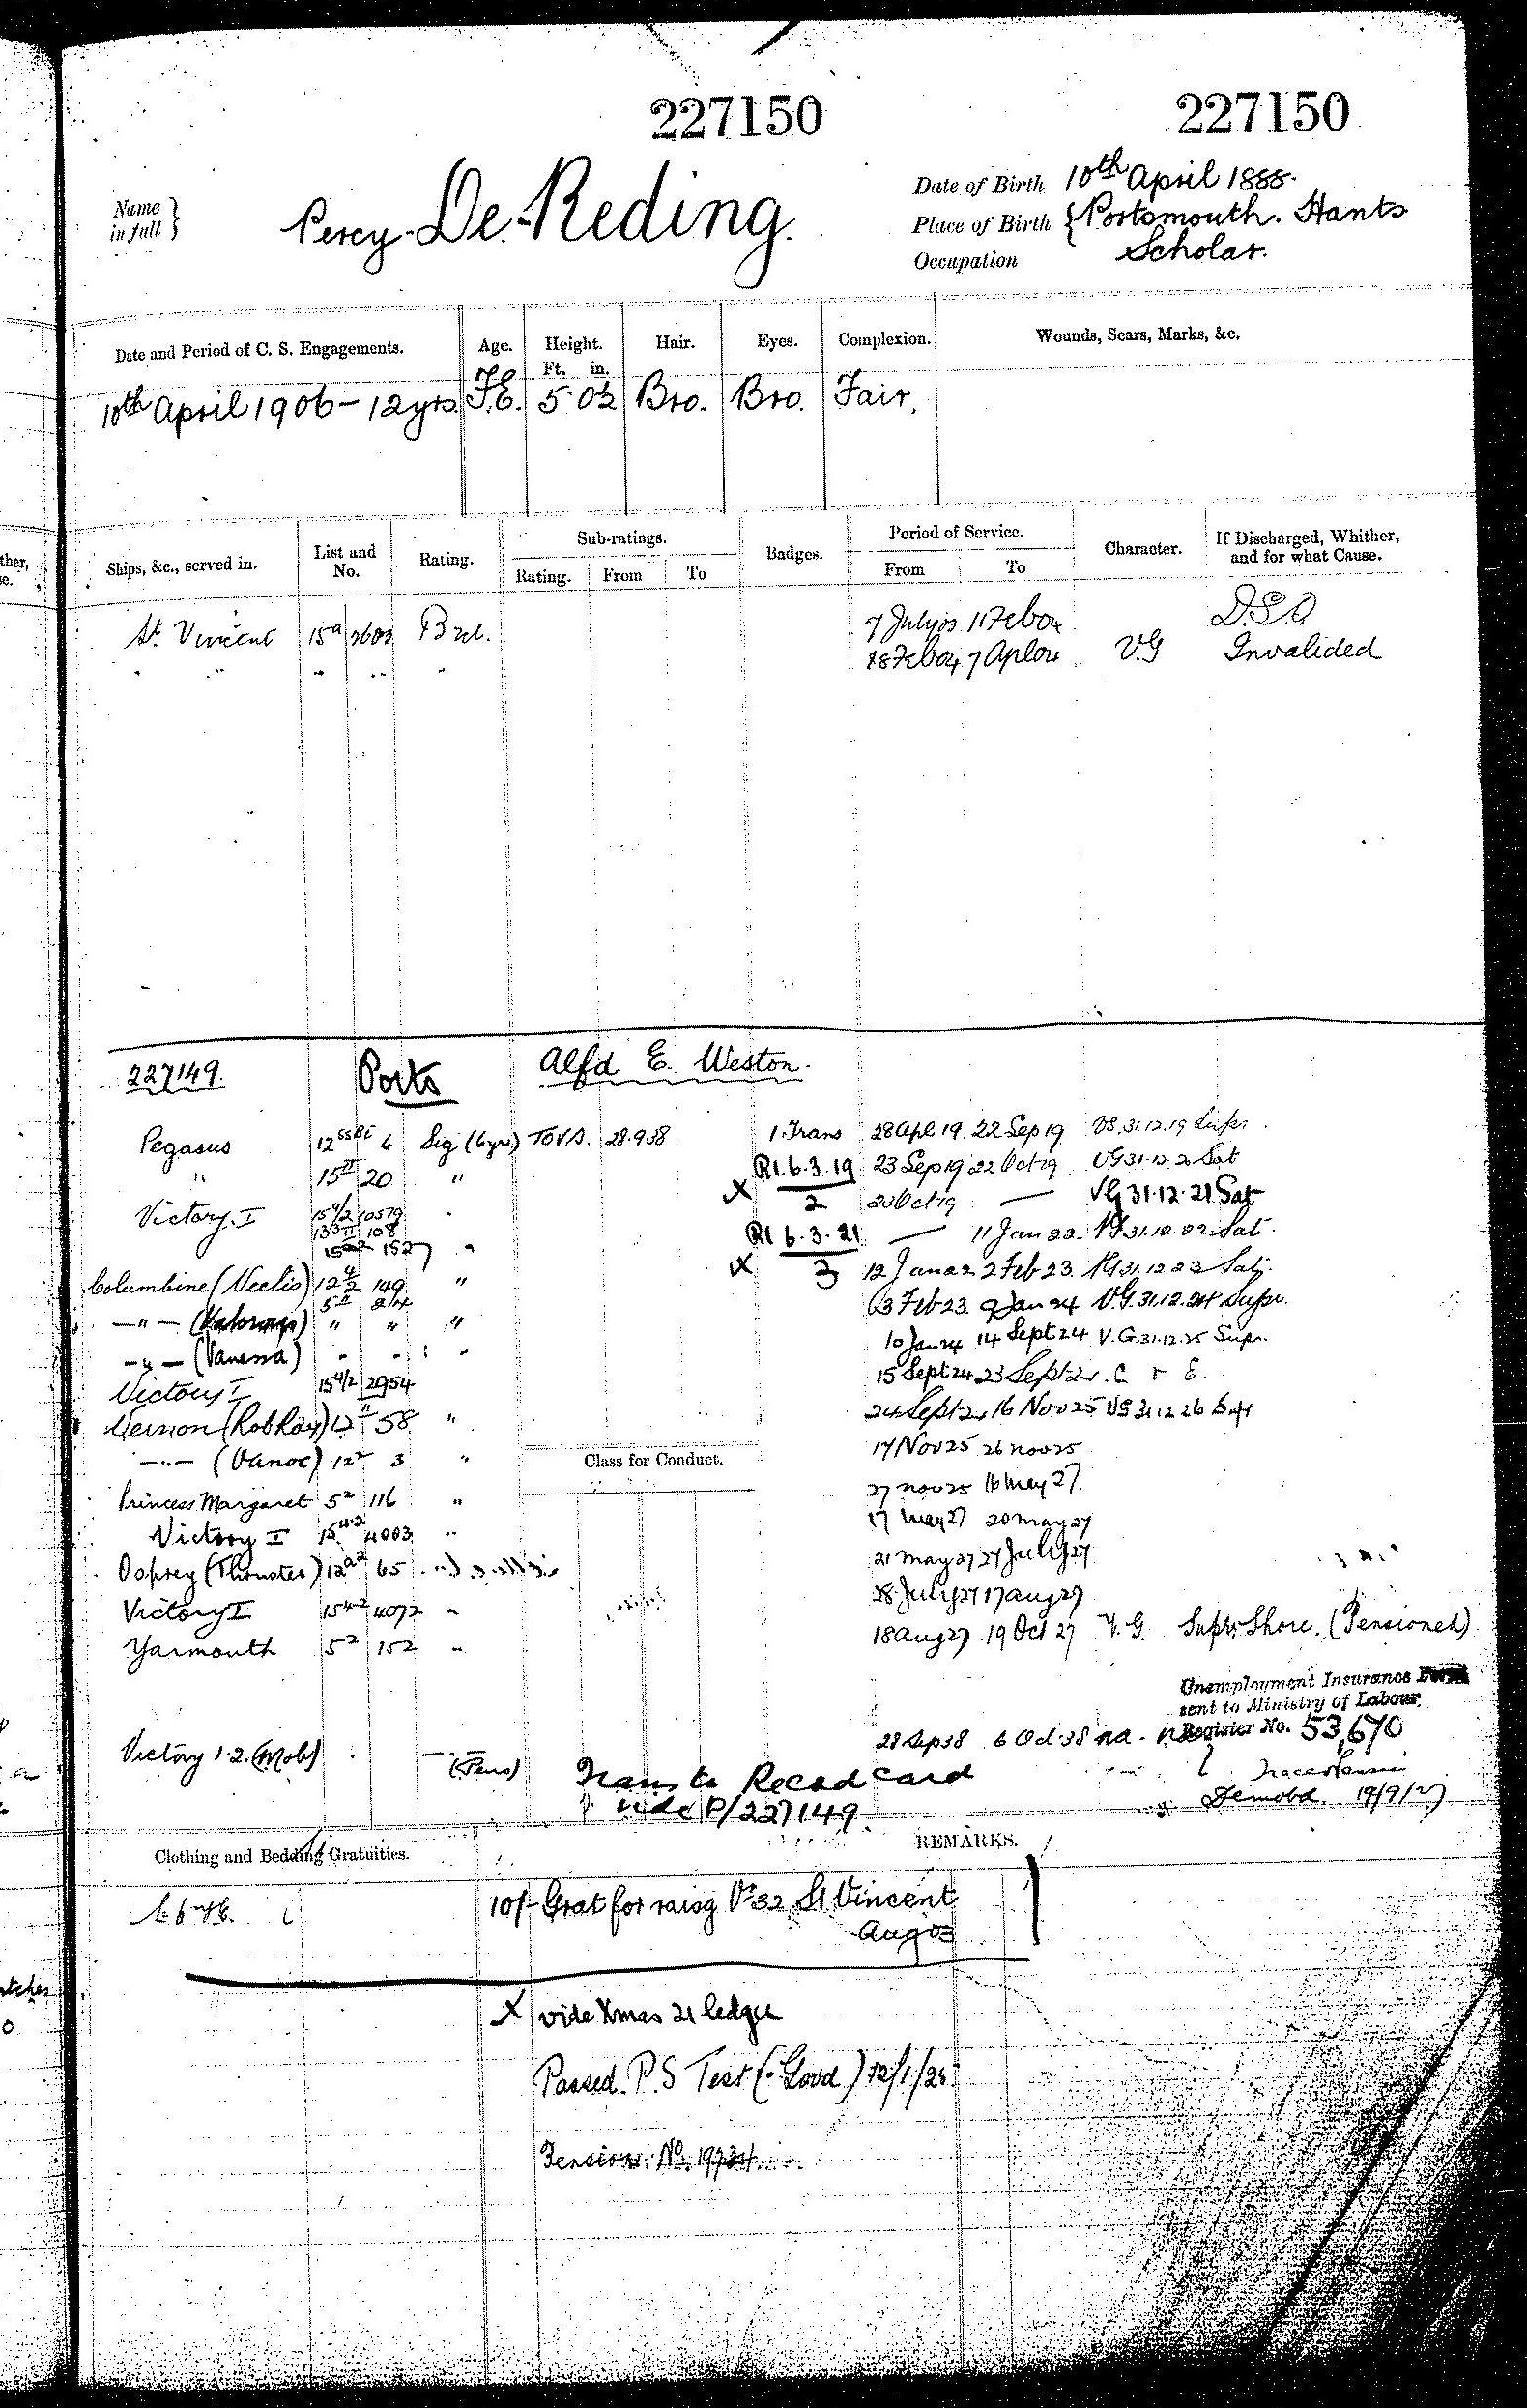 227150 227150
Name in full } Percy De-Reding.
Date of Birth 10th April 1888.
Place of Birth { Portsmouth. Hants
Occupation Scholar.
Date and Period of C. S. Engagements. Age. Height. Ft. in. Hair. Eyes. Complexion. Wounds, Scars, Marks, &c.
10th April 1906 - 12 yrs. F.E. 5 0½ Bro. Bro. Fair.
Ships, &c., served in. List and No. Rating. Sub-ratings. Rating. From To Badges. Period of Service. From To Character. If Discharged, Whither, and for what Cause.
St. Vincent 15a 2602 B 2cl. 7 July 03 11 Feb 04 D.S.Q
" " " " " 18 Feb 04 7 Ap 04 V.G Invalided
227149. Ports Alfd E. Weston.
Pegasus 12 6 Sig (6 yrs) 28.9.38 1 Trans 28 Apl 19 22 Sep 19 VG 31.12.19 Supr
" 15II 20 " R1. 6.3.19 23 Sep 19 22 Oct 19 VG 31.12.20 Sat
X 2 23 Oct 19 — VG 31.12.21 Sat
Victory I 15 4/2 10579 " R1 6.3.21 — 11 Jan 22 VG 31.12.22 Sat.
108
152 " X 3 12 Jan 22 2 Feb 23 VG 31.12.23 Sat
Columbine (Vectis) 12 4/2 149 " 3 Feb 23 9 Jan 24 VG 31.12.24 Supr.
—"— " " " 10 Jan 24 14 Sept 24 V.G. 31.12.25 Supr.
—"— (Vanessa) " " " 15 Sept 24 23 Sept 24
Victory I 15 4/2 2954 24 Sept 24 16 Nov 25 VG 31.12.26
Vernon (Rob Roy) 12 58 " 17 Nov 25 26 Nov 25
—"— (Vanoc) 12² 3 " Class for Conduct. 27 Nov 25 16 May 27
Princess Margaret 5² 116 " 17 May 27 20 May 27
Victory I 15 4·2 4003 " 21 May 27 27 July 27
Osprey (Thruster) 12a2 65 28 July 27 17 Aug 27
Victory I 15 4·2 4072 " 18 Aug 27 19 Oct 27 V.G. Supr Shore. (Pensioned)
Yarmouth 5² 152 "
Unemployment Insurance
sent to Ministry of Labour.
Register No. 53,670
Victory 1.2. (Mob) (Pens) 28 Sep 38 6 Oct 38
Trans to Record Card
vide P/227149.
Demobd.
Clothing and Bedding Gratuities. REMARKS.
10/- Grat for raisg Vce 32 St Vincent
Aug 03
X vide Xmas 21 ledger
Passed. P.S Test (Good)
Pension: No.